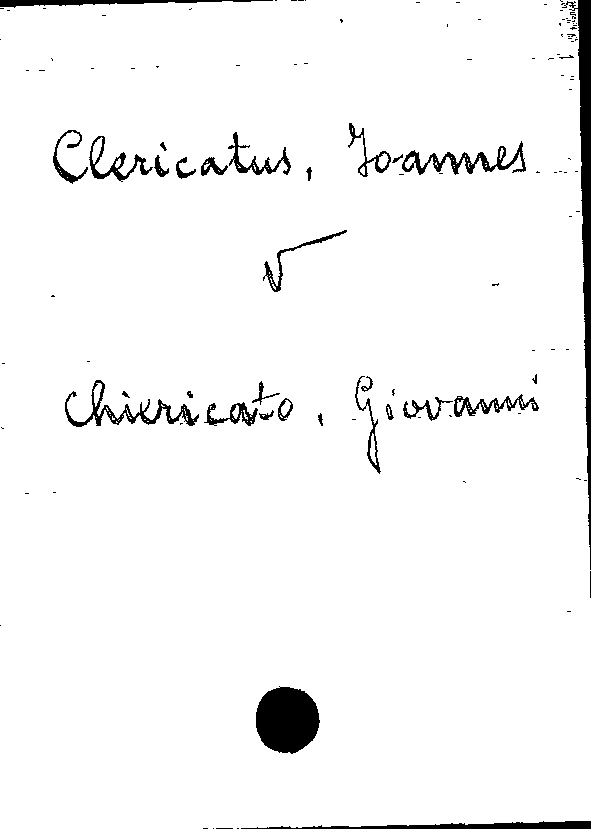 Clericatus, Joannes
V
Chiericato, Giovanni